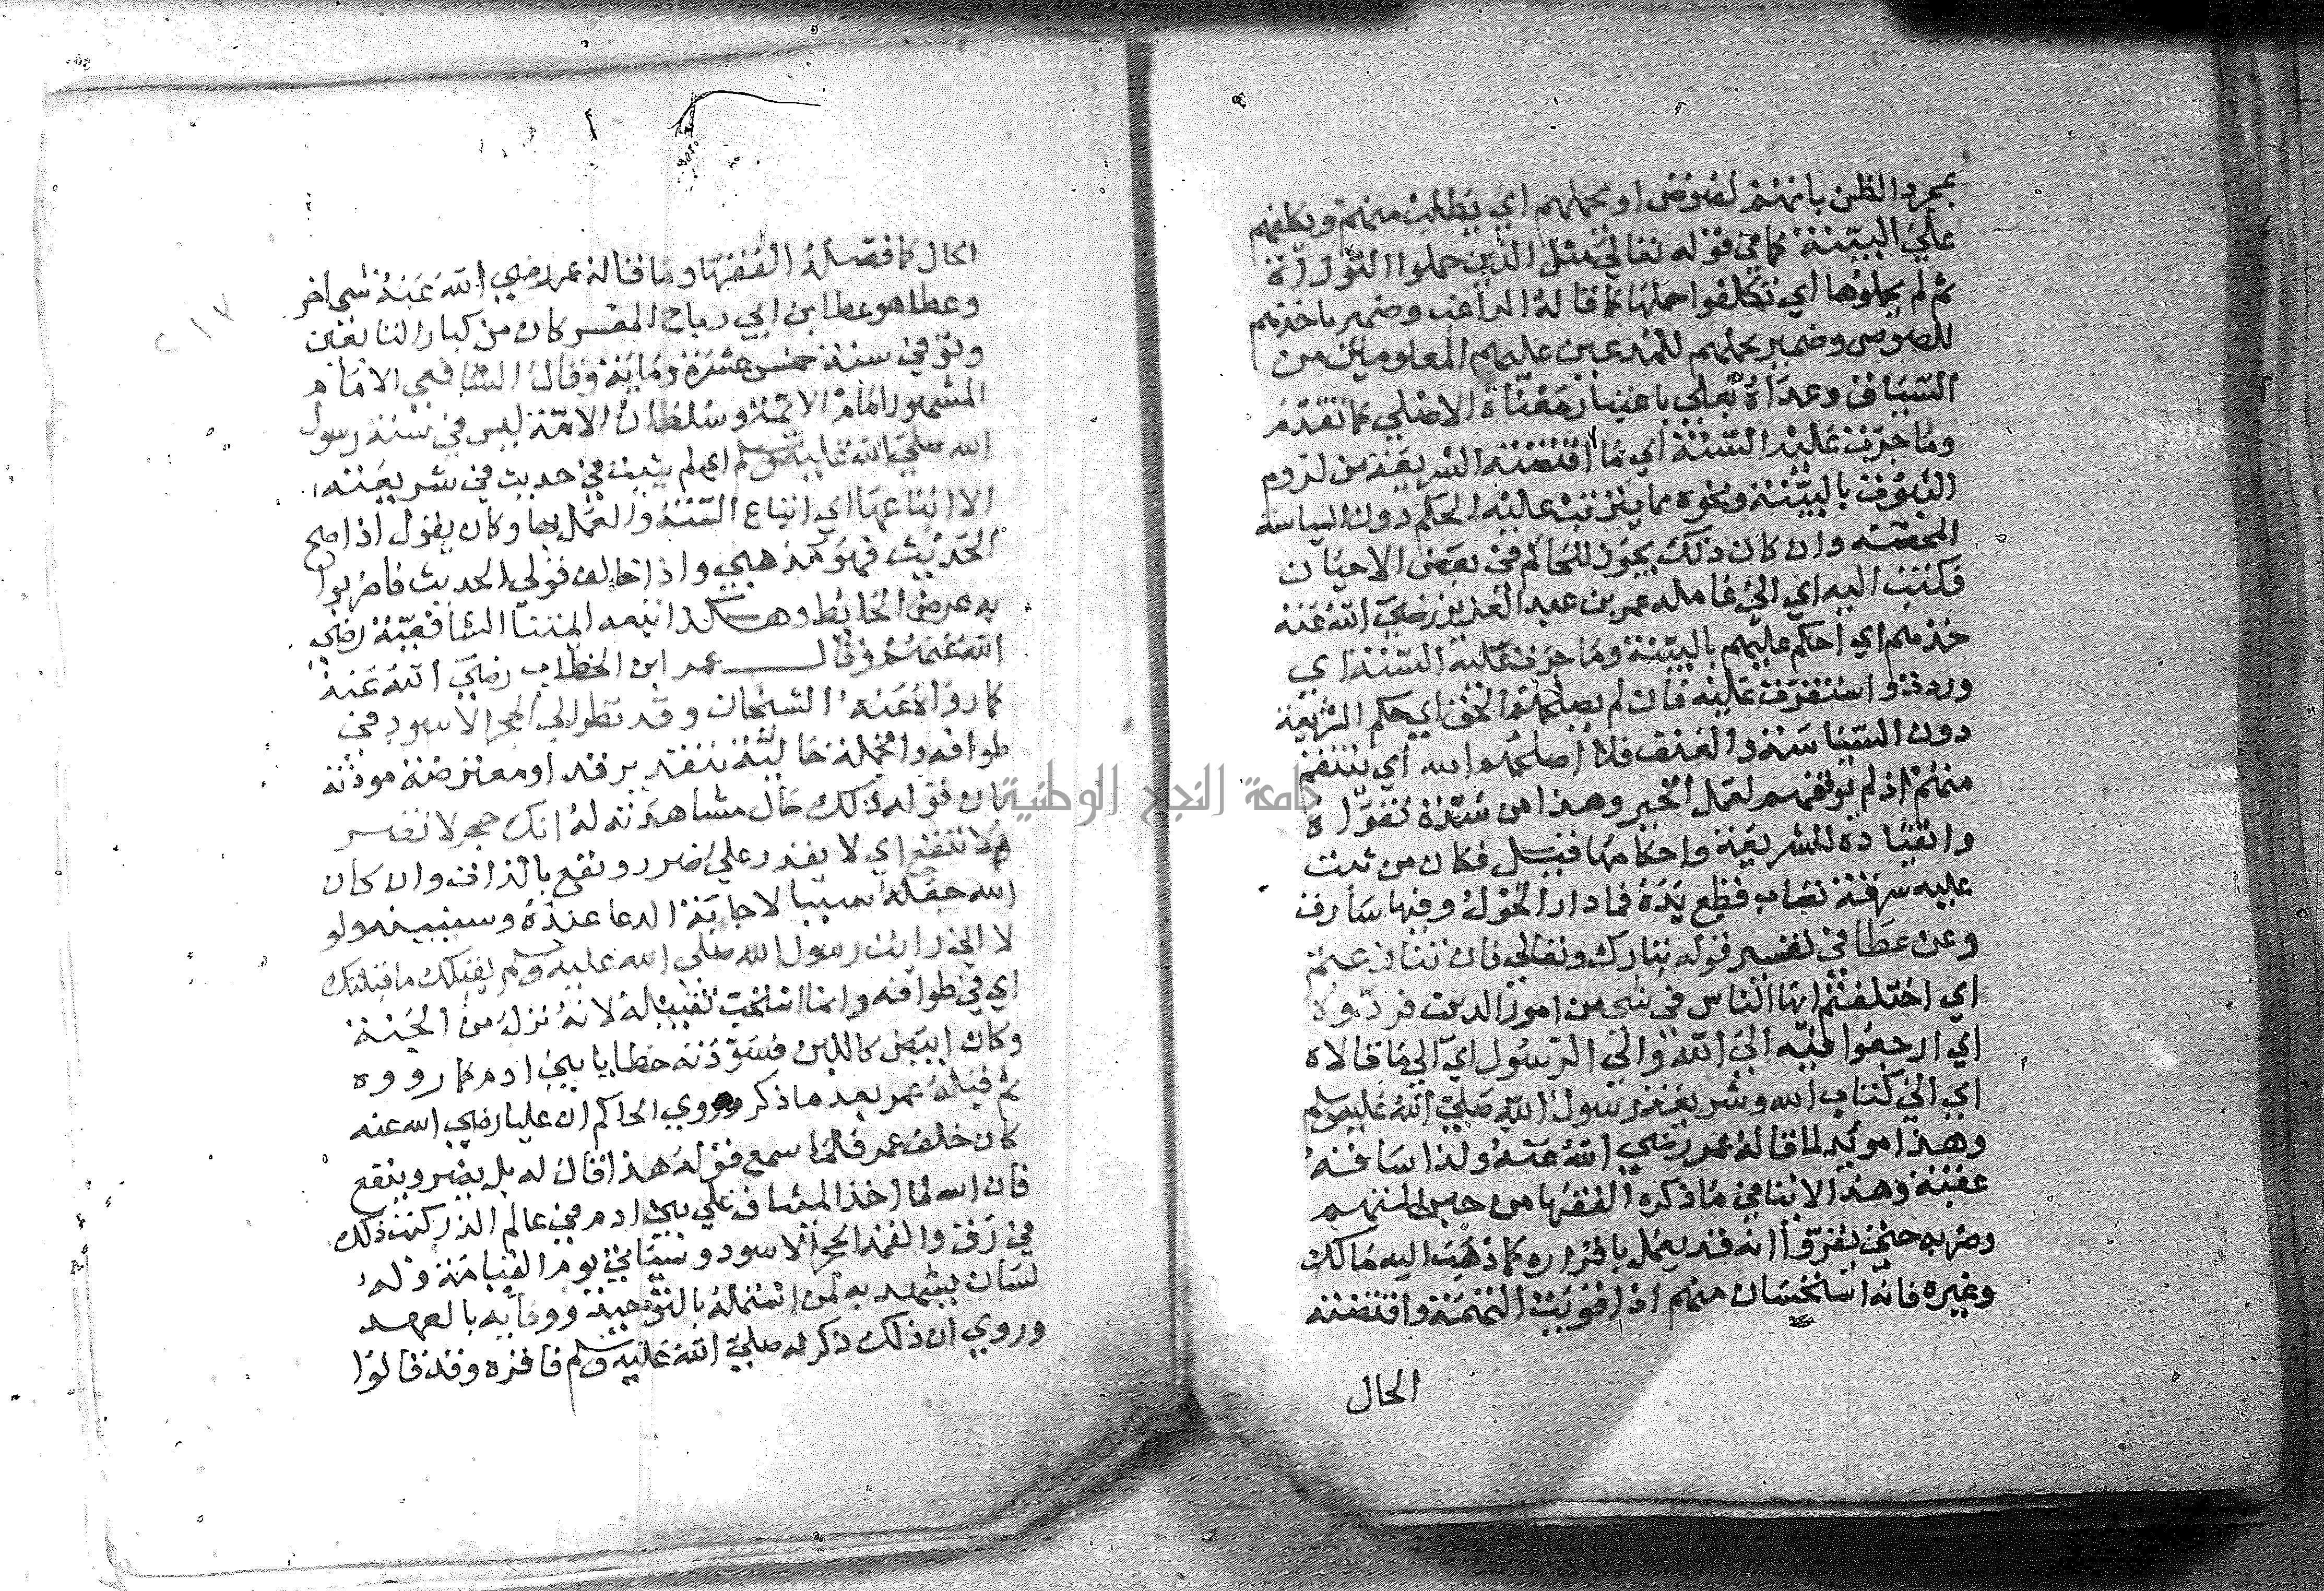 بمجرد الظن بانهم لصوص او يحملهم اي يطالب منهم ويكلفهم
على البينة كما في قوله تعالى مثل الذين حملوا التوراة
ثم لم يحملوها اي تكلفوا حملها كما قاله الراغب وضمير ياخذهم
للصوص وضمير يحملهم للمدعين عليهم المعلومين من
السياق وعداه بعلى باعتبار معناه الاصلي كما تقدم
وما جرت عليه السنة اي ما اقتضته الشريعة من لزوم
الثبوت بالبينة ونحوه مما يترتب عليه الحكم دون السياسة
المحضة وان كان ذلك يجوز للحاكم في بعض الاحيان
فكتب اليه اي الى عامله عمر بن عبد العزيز رضي الله عنه
خذهم اي احكم عليهم بالبينة وما جرت عليه السنة اي
وردت واستقرت عليه فان لم يصلحهم الحق اي حكم الشريعة
دون السياسة والعنف فلا اصلحهم الله اي ينتقم
منهم اذ لم يوفقهم لعمل الخير وهذا من شدة تقواه
وانقياده للشريعة واحكامها فقيل فكان من ثبت
عليه سرقة نصاب قطع يده فما دار الحول وفيها سارق
وعن عطا في تفسير قوله تبارك وتعالى فان تنازعتم
اي اختلفتم ايها الناس في شي من امور الدين فردوه
اي ارجعوا فيه الى الله والى الرسول اي الى ما قالاه
اي الى كتاب الله وشريعة رسول الله صلى الله عليه وسلم
وهذا مويد لما قاله عمر رضي الله عنه ولذا ساقه
عقبه وهذا لا ينافي ما ذكره الفقها من حبس المتهم
وضربه حتى يقر وانه قد يعمل باقراره كما ذهب اليه مالك
وغيره فانه استحسان منهم اذا قويت التهمة واقتضته
الحال
الحال كما فصله الفقها وما قاله عمر رضي الله عنه شي اخر
وعطا هو عطا بن ابي رباح المفسر كان من كبار التابعين
وتوفي سنة خمس عشرة ومائة وقال الشافعي الامام
المشهور امام الائمة وسلطان الامة ليس في سنة رسول
الله صلى الله عليه وسلم اي لم يثبت في حديث في شريعته
الا اتباعها اي اتباع السنة والعمل بها وكان يقول اذا صح
الحديث فهو مذهبي واذا خالف قولي الحديث فاضربوا
به عرض الحايط وهكذا ائمتنا الشافعية رضي
الله عنهم وقال عمر ابن الخطاب رضي الله عنه
كما رواه عنه الشيخان وقد نظر الى الحجر الاسود في
طوافه والجملة حالية بتقدير قد او معترضة موذنة
بان قوله ذلك حال مشاهدته له انك حجر لا تضر
ولا تنفع اي لا يقدر على ضرر ونفع بالذات وان كان
الله جعله سببا لاجابة الدعا عنده وسنبينه ولو
لا اني رايت رسول الله صلى الله عليه وسلم يقبلك ما قبلتك
اي في طوافه وانما استحب تقبيله لانه نزل من الجنة
وكان ابيض كاللبن فسودته خطايا بني ادم كما رووه
ثم قبله عمر بعد ما ذكر وروي الحاكم ان عليا رضي الله عنه
كان خلف عمر فلما سمع قوله هذا قال له بل يضر وينفع
فان الله لما اخذ الميثاق على بني ادم في عالم الذر كتب ذلك
في رق والقمه الحجر الاسود وسياتي يوم القيامة وله
لسان يشهد به لمن استلمه بالتوحيد ووفايه بالعهد
وروي ان ذلك ذكر له صلى الله عليه وسلم فاقره وقد قالوا
٢١٧
جامعة النجاح الوطنية